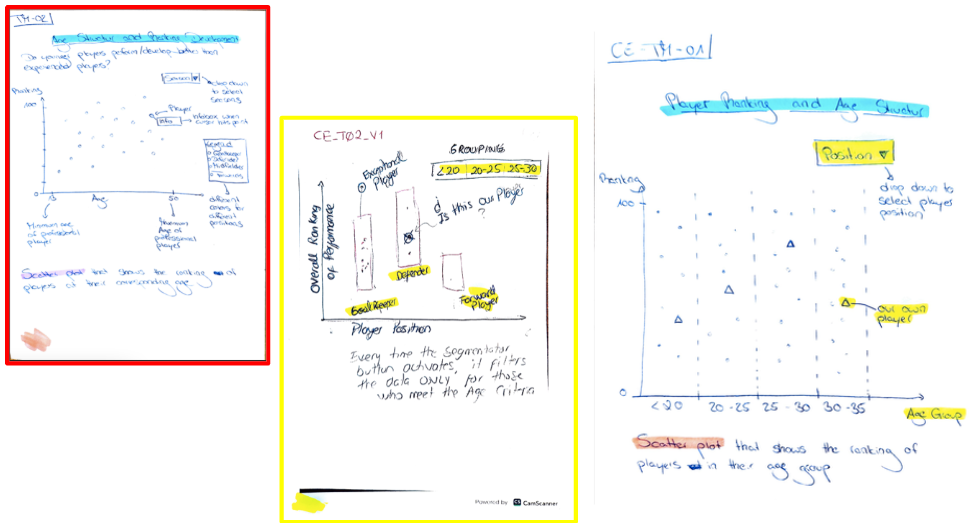 TM-02
Age Structur and Ranking/Development
Do younger players perform/develop better than
experienced players?
Season ▼
drop down
to select
seasons
Ranking
100
Player
Info
Infobox when
Legend
Goalkeeper
Defender
Midfielder
Forwards
different
colors for
different
positions
15
Age
50
Minimum age
of professional
player
Maximum
Age of
professional
player
Scatter plot that shows the ranking of
players of their corresponding age.
CE_T02_V1
GROUPING
<20 20-25 25-30
Exceptional
Player
Is this our Player
?
Overall Ranking
of Performance
Defender
Goalkeeper
Forward
Player
Player Position
Every time the Segmentator
button activates, it filters
the data ONLY for those
who meet the Age Criteria
Powered by CS CamScanner
CE-TM-01
Player Ranking and Age Structur
Position ▼
drop down to
select player
position
Ranking
100
our own
player
0
<20 20-25 25-30 30-35
Age Group
Scatter plot that shows the ranking of
players in their age group